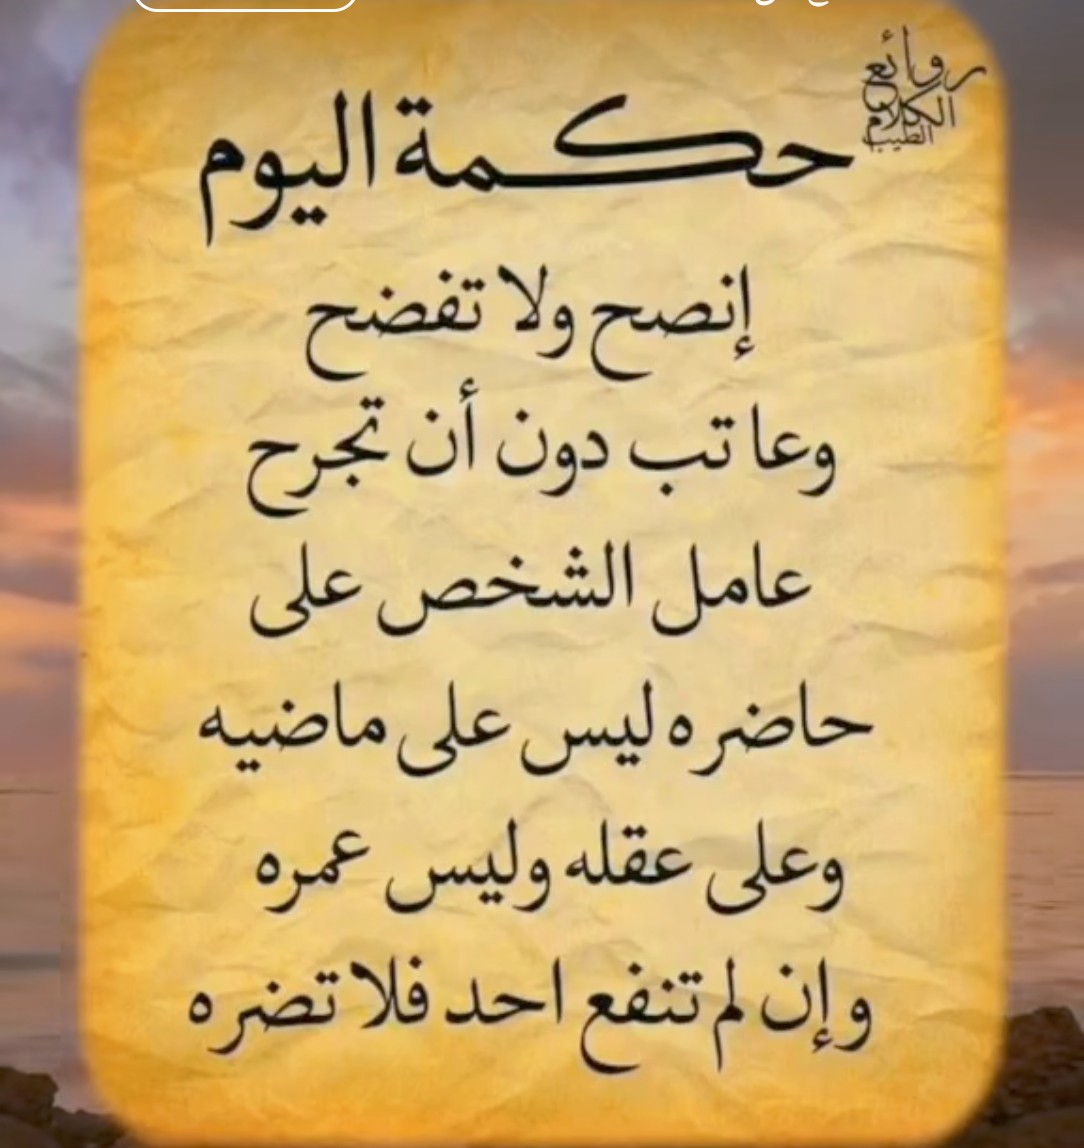 روائع
الكلام
الطيب
حكمة اليوم
إنصح ولا تفضح
وعاتب دون أن تجرح
عامل الشخص على
حاضره ليس على ماضيه
وعلى عقله وليس عمره
وإن لم تنفع احد فلا تضره